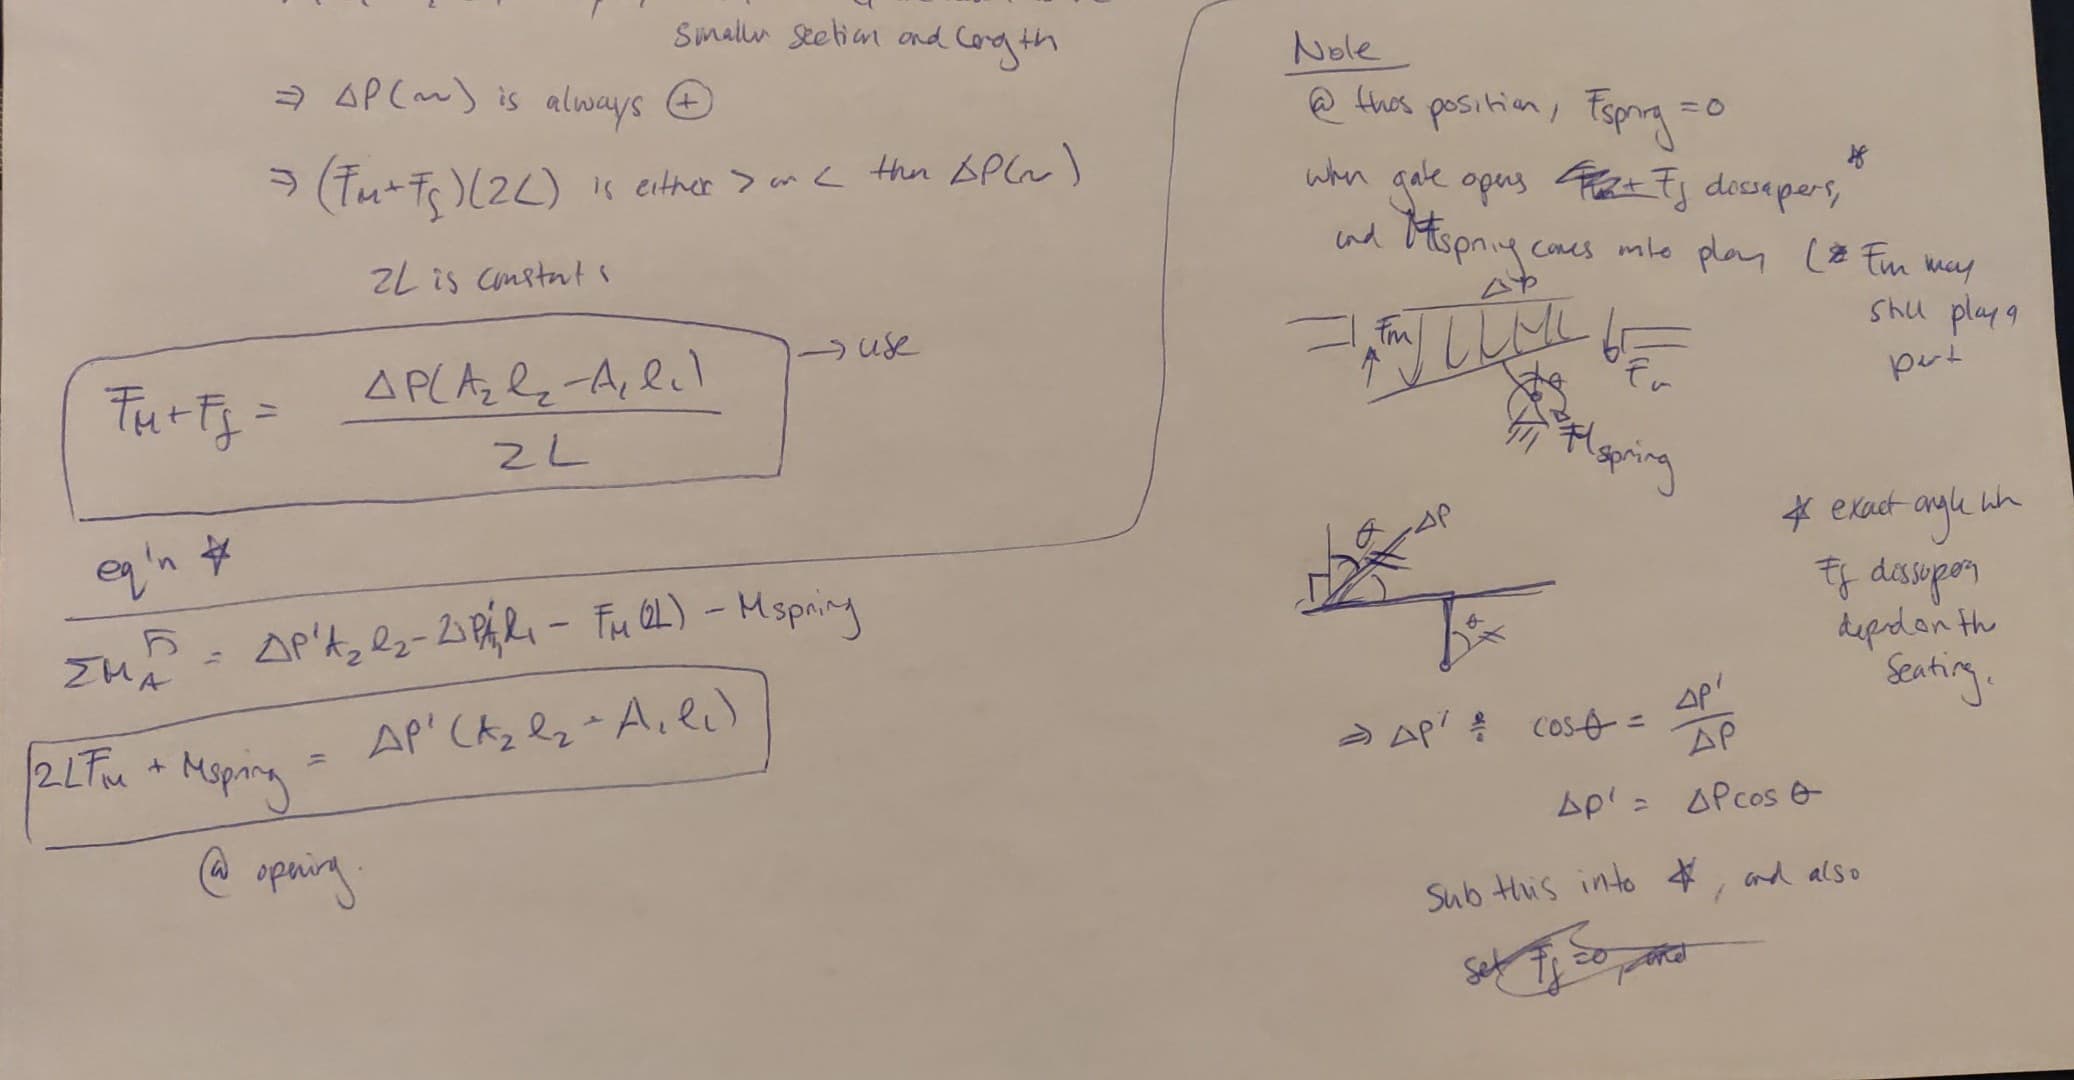 smaller section and length
⇒ ΔP(~) is always ⊕
⇒ (FM+Ff)(2L) is either > or < then ΔP(~)
2L is constant
FM+Ff = ΔP(A2 l2 - A1 l1) / 2L
→ use
eq'n ☆
ΣMA = ΔP'A2 l2 - ΔP'A1 l1 - FM(2L) - Mspring
2LFM + Mspring = ΔP'(A2 l2 - A1 l1)
@ opening.
Note
@ thos position, Fspring = 0
when gate opens Ff dissapers,*
and Mspring comes into play (* Fm may
still play a
part
ΔP
Fm
Fm
θ
Mspring
θ
ΔP
θ
* exact angle wh
Ff dissapers
depend on the
seating.
⇒ ΔP' : cosθ = ΔP' / ΔP
ΔP' = ΔPcos θ
Sub this into ☆, and also
set Ff = 0, and